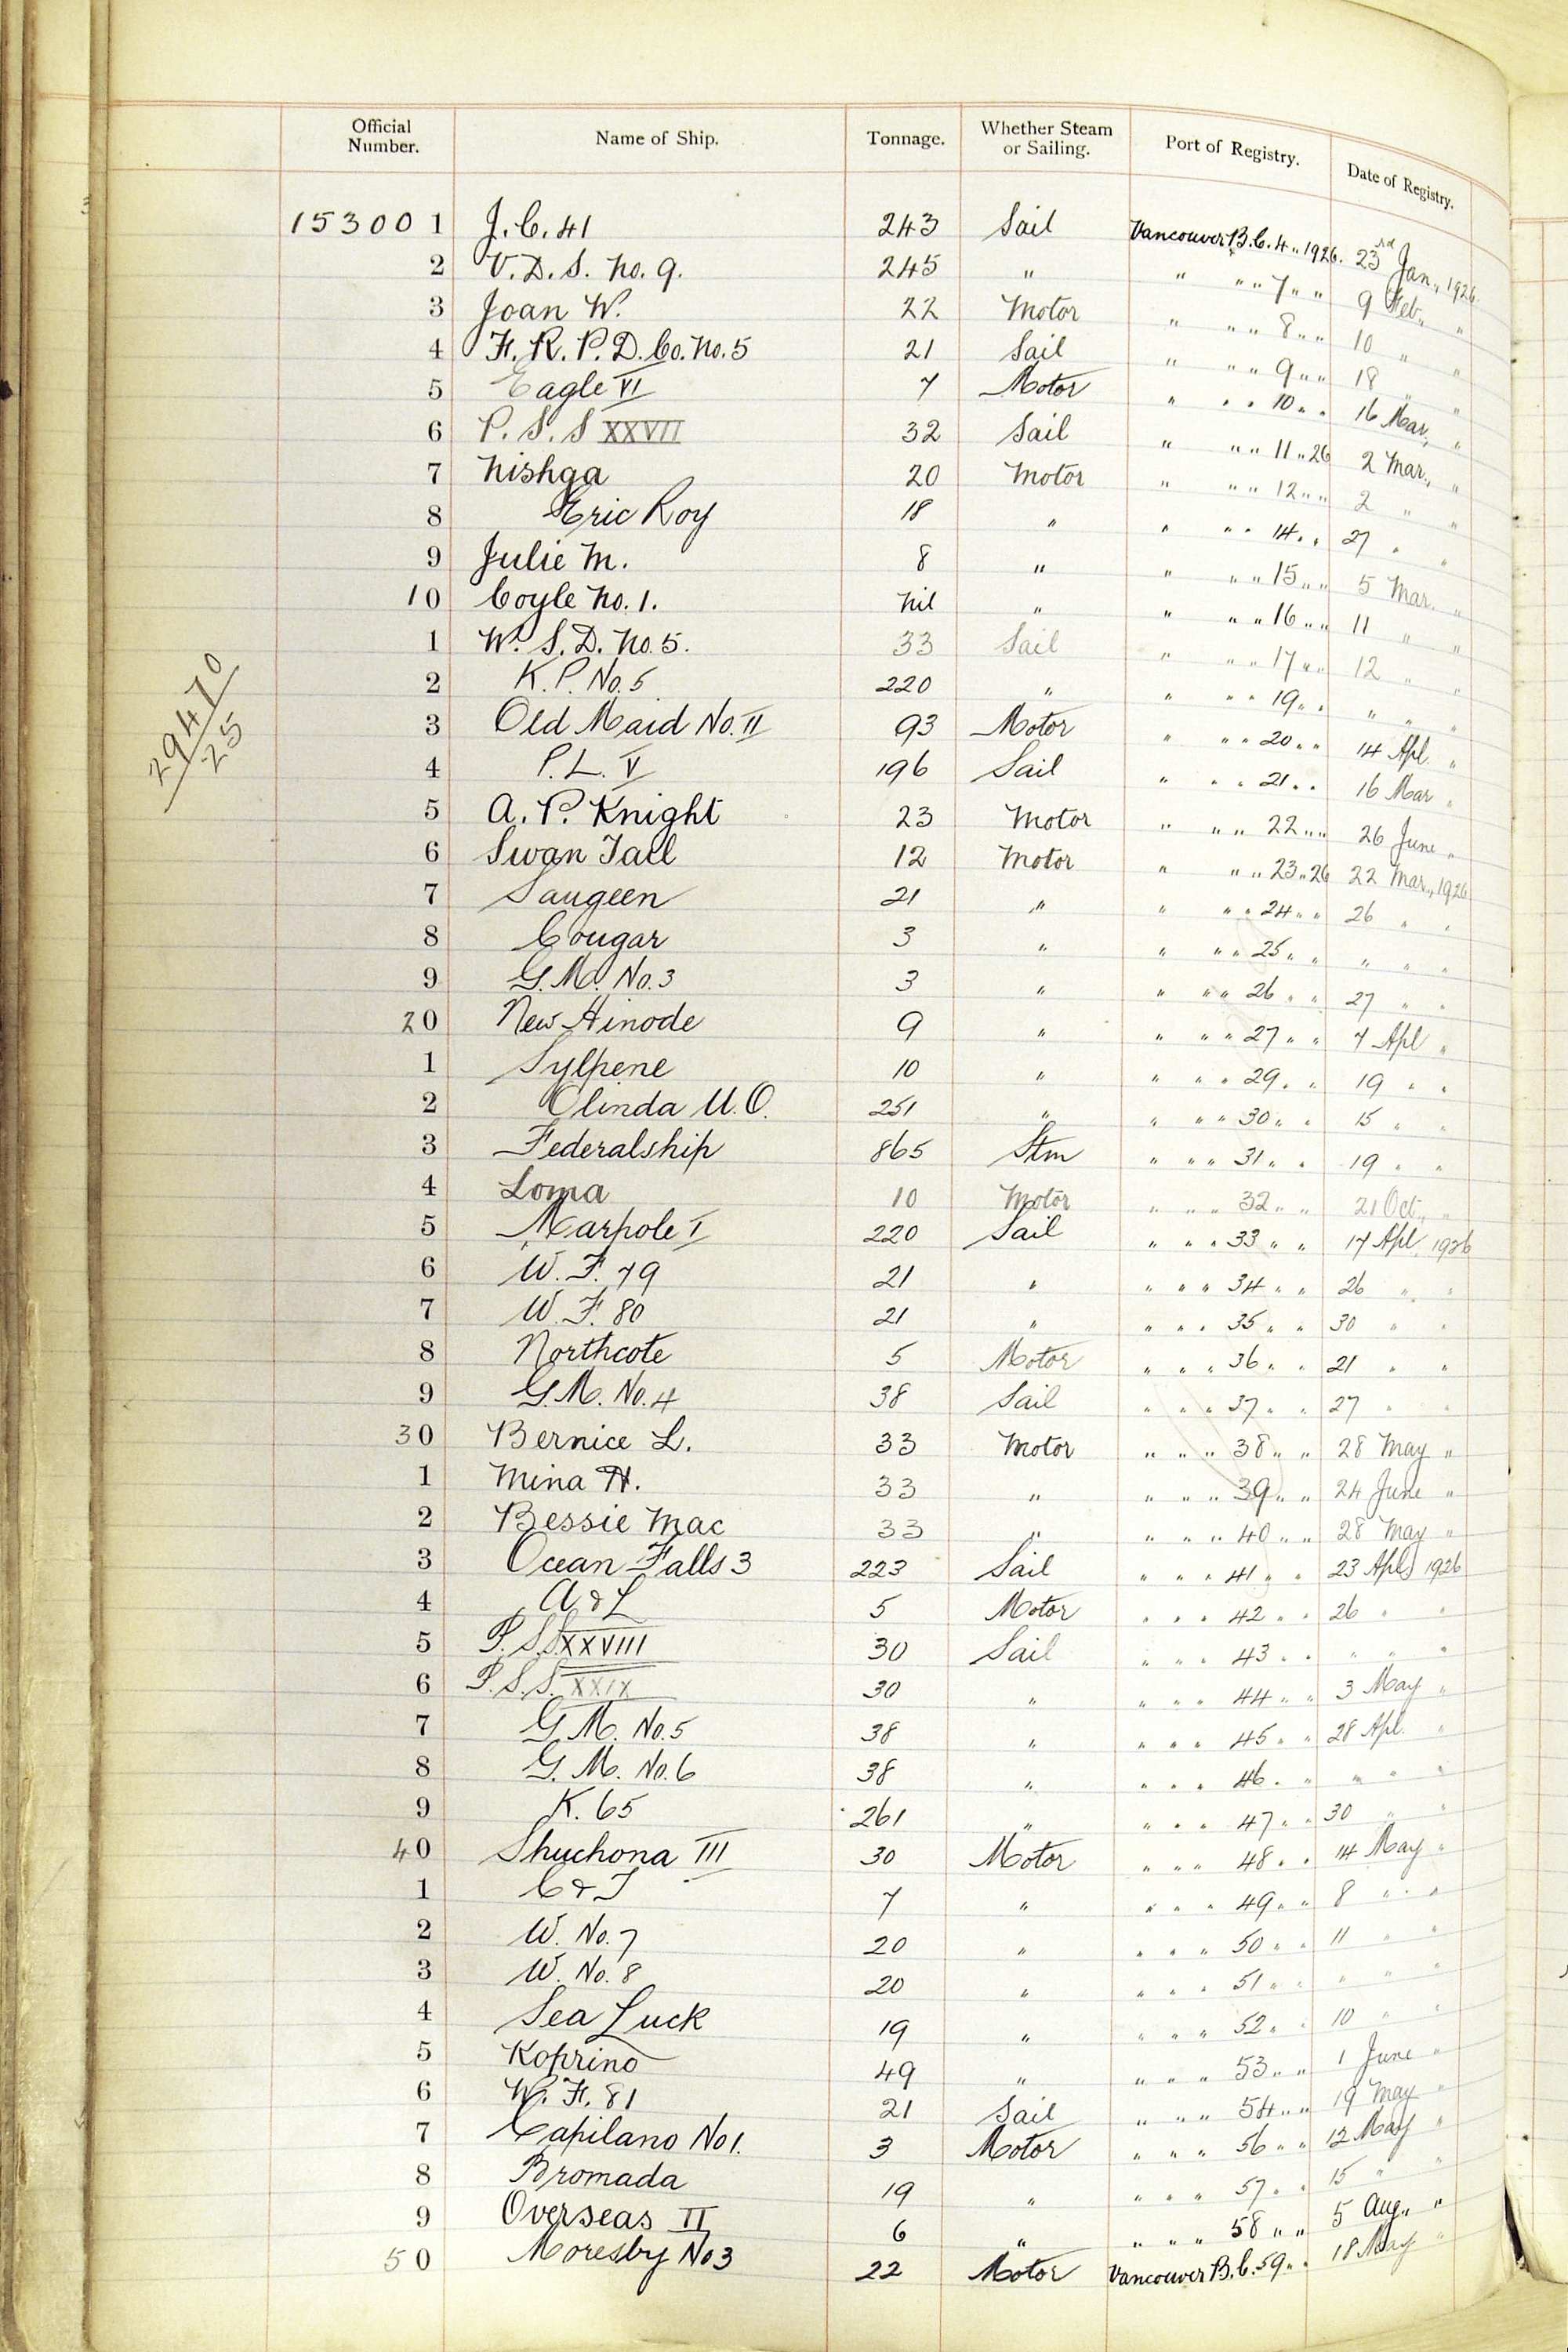 Official Number. Name of Ship. Tonnage. Whether Steam or Sailing. Port of Registry. Date of Registry.
153001 J.C. 41 243 Sail Vancouver B.C. 4 " 1926. 23rd Jan., 1926
2 V.D.S. No. 9. 245 " " " " 7 " " 9 Feb., "
3 Joan W. 22 Motor " " " 8 " " 10 " "
4 F.R.P.D. Co. No. 5 21 Sail " " " 9 " " 18 " "
5 Eagle VI 7 Motor " " " 10 " " 16 Mar., "
6 P.S.S XXVII 32 Sail " " " 11 " 26 2 Mar., "
7 Nishga 20 Motor " " " 12 " " 2 " "
8 Eric Roy 18 " " " " 14 " " 27 " "
9 Julie M. 8 " " " " 15 " " 5 Mar. "
10 Coyle No. 1. Nil " " " " 16 " " 11 " "
1 W.S.D. No. 5. 33 Sail " " " 17 " " 12 " "
2 K.P. No. 5 220 " " " " 19 " " " " "
3 Old Maid No. II 93 Motor " " " 20 " " 14 Apl. "
4 P.L. V 196 Sail " " " 21 " " 16 Mar "
5 A.P. Knight 23 Motor " " " 22 " " 26 June "
6 Swan Tail 12 Motor " " " 23 " 26 22 Mar., 1926
29470
25
7 Saugeen 21 " " " " 24 " " 26 " "
8 Cougar 3 " " " " 25 " " " " "
9 G.M. No. 3 3 " " " " 26 " " 27 " "
20 New Hinode 9 " " " " 27 " " 7 Apl "
1 Sylpene 10 " " " " 29 " " 19 " "
2 Olinda U.O. 251 " " " " 30 " " 15 " "
3 Federalship 865 Stm " " " 31 " " 19 " "
4 Loma 10 Motor " " " 32 " " 21 Oct., "
5 Marpole I 220 Sail " " " 33 " " 17 Apl. 1926
6 W.F. 79 21 " " " " 34 " " 26 " "
7 W.F. 80 21 " " " " 35 " " 30 " "
8 Northcote 5 Motor " " " 36 " " 21 " "
9 G.M. No. 4 38 Sail " " " 37 " " 27 " "
30 Bernice L. 33 Motor " " " 38 " " 28 May "
1 Mina H. 33 " " " " 39 " " 24 June "
2 Bessie Mac 33 " " " " 40 " " 28 May "
3 Ocean Falls 3 223 Sail " " " 41 " " 23 Apl 1926
4 A & L 5 Motor " " " 42 " " 26 " "
5 P.S.S. XXVIII 30 Sail " " " 43 " " " " "
6 P.S.S. XXIX 30 " " " " 44 " " 3 May "
7 G.M. No. 5 38 " " " " 45 " " 28 Apl. "
8 G.M. No. 6 38 " " " " 46 " " " " "
9 K. 65 261 " " " " 47 " " 30 " "
40 Shuchona III 30 Motor " " " 48 " " 14 May "
1 C & T 7 " " " " 49 " " 8 " "
2 W. No. 7 20 " " " " 50 " " 11 " "
3 W. No. 8 20 " " " " 51 " " " " "
4 Sea Luck 19 " " " " 52 " " 10 " "
5 Koprino 49 " " " " 53 " " 1 June "
6 W.F. 81 21 Sail " " " 54 " " 19 May "
7 Capilano No 1. 3 Motor " " " 56 " " 12 May "
8 Bromada 19 " " " " 57 " " 15 " "
9 Overseas II 6 " " " " 58 " " 5 Aug., "
50 Moresby No 3 22 Motor Vancouver B.C. 59 " " 18 May "